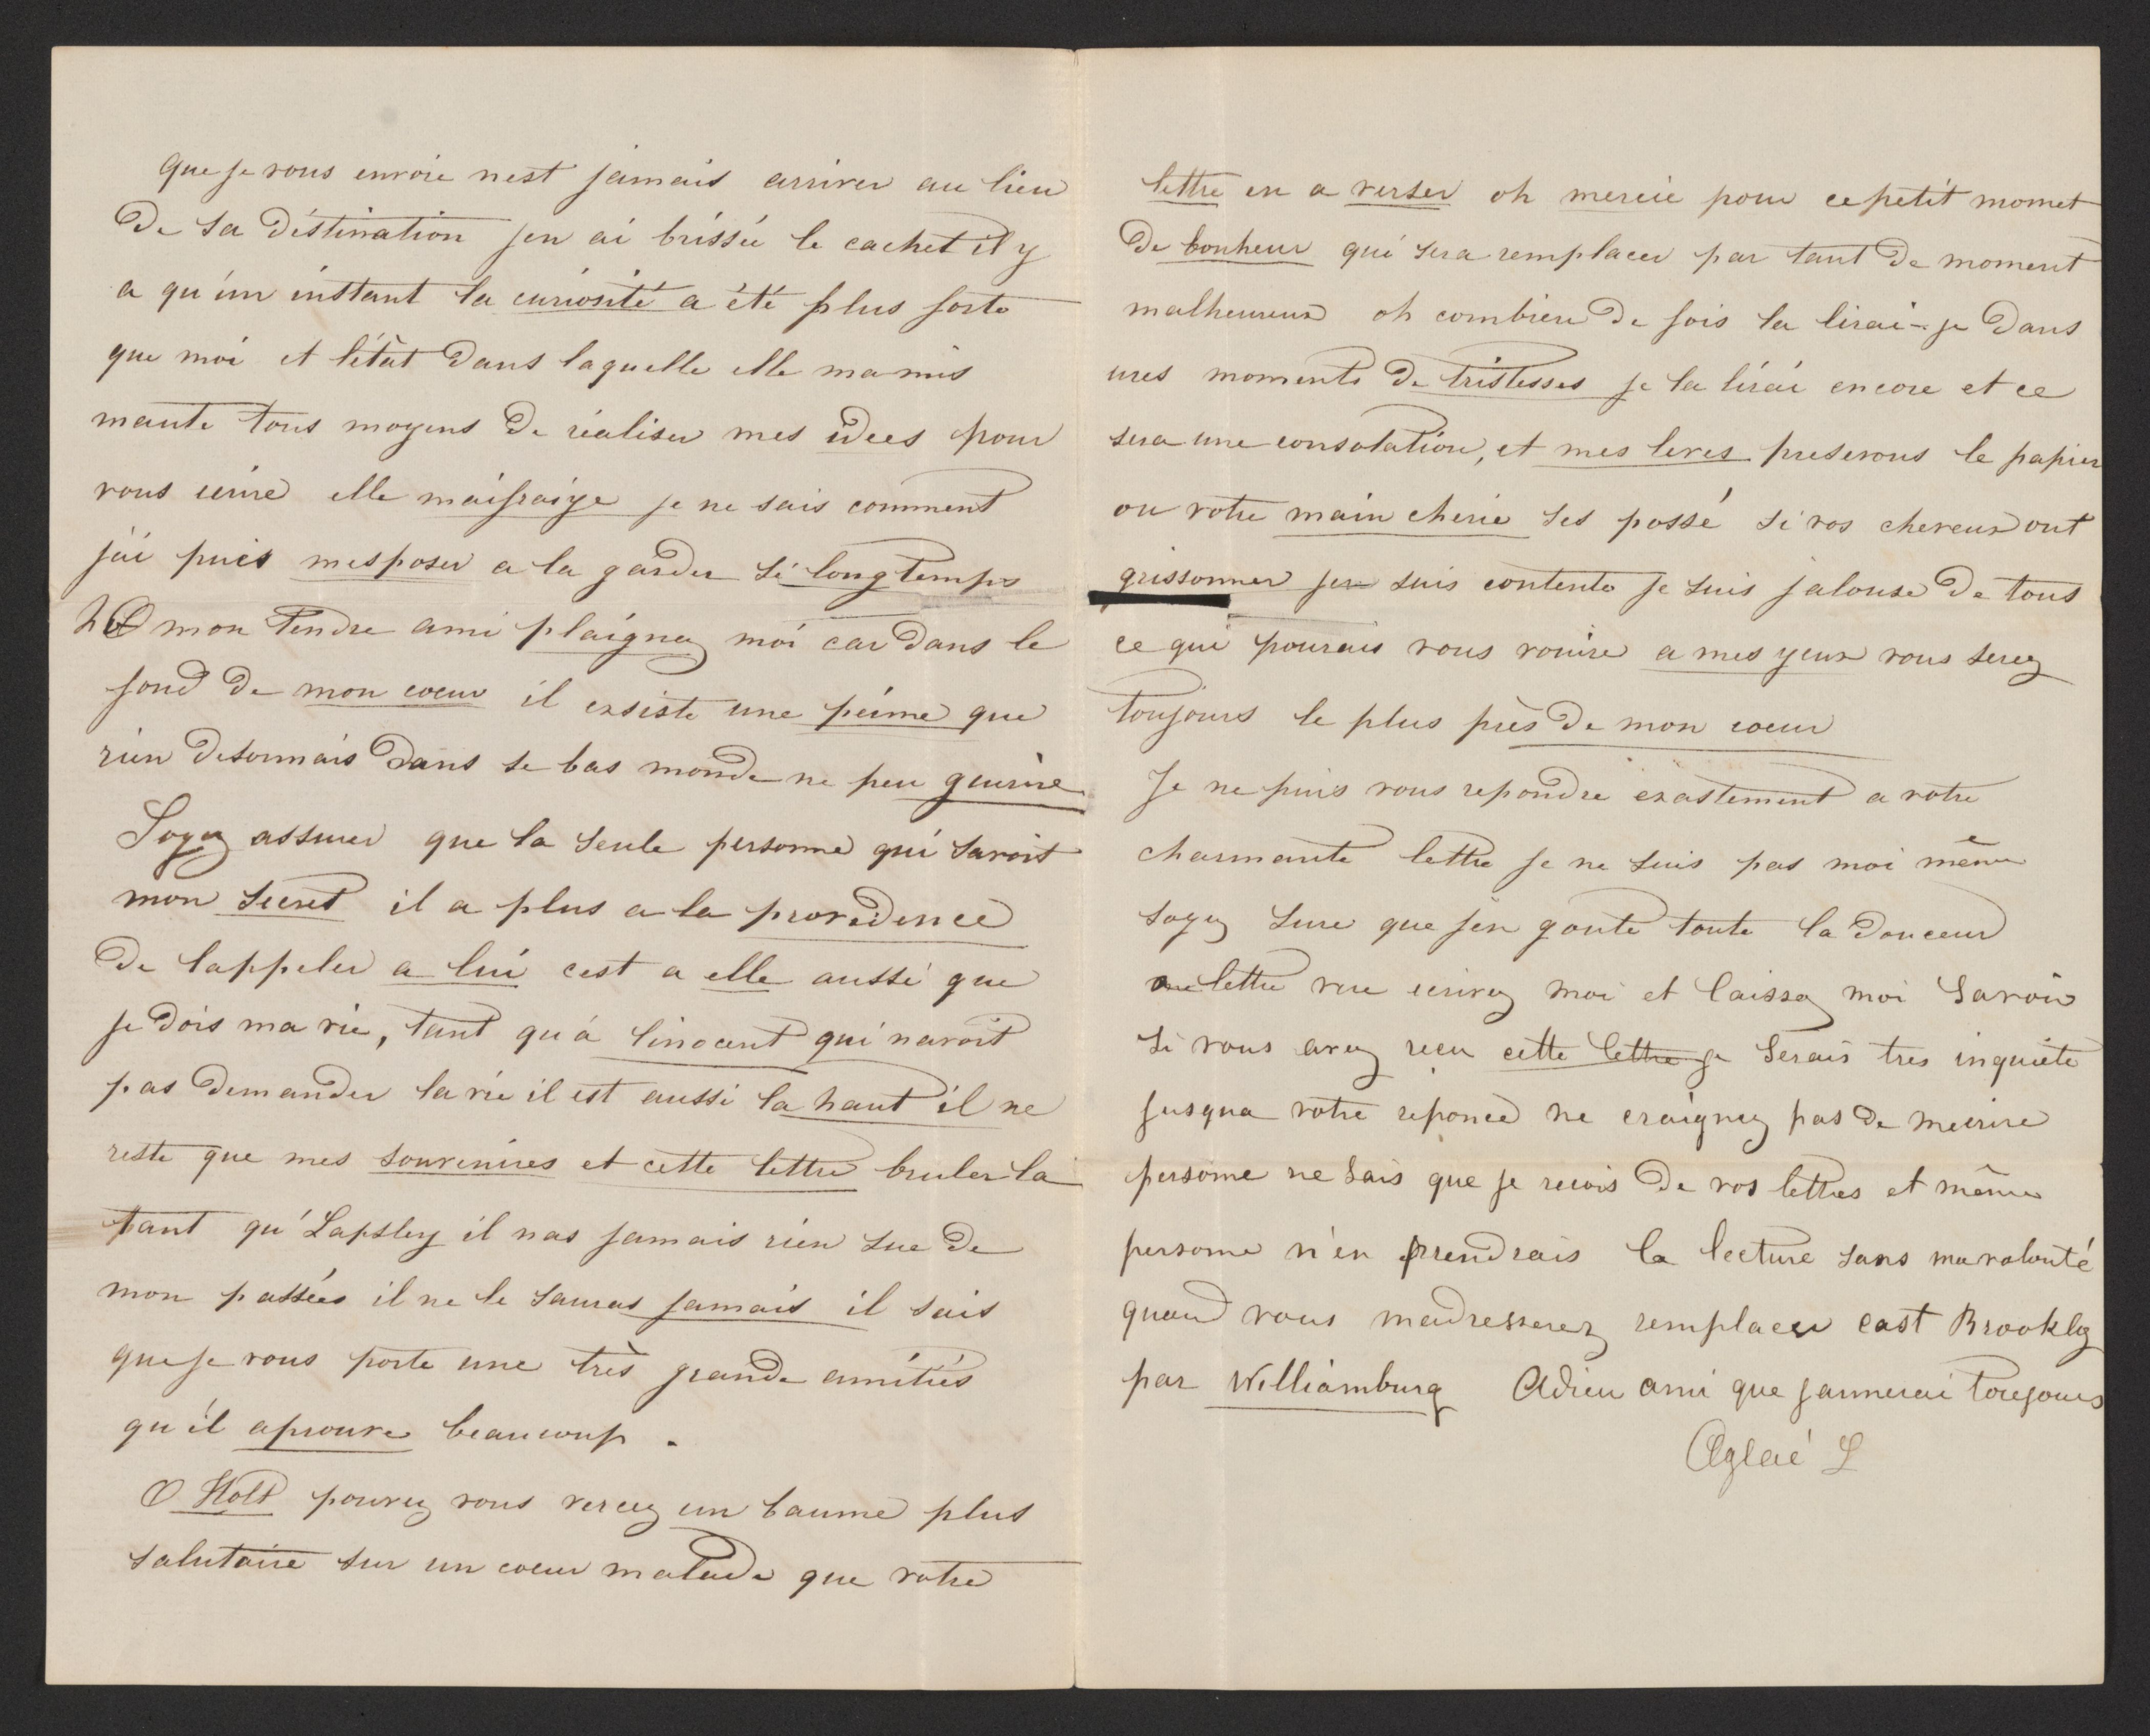 que je vous envoie nest jamais arriver au lieu
de sa déstination jen ai brissée le cachet il y
a qu'un instant la curiosité a été plus forte
que moi et létât dans laquelle elle ma mis
mante tous moyens de réaliser mes idees pour
vous ecrire elle maifraiye je ne sais comment
jai puis mesposer a la garder si longtemps
O mon tendre ami plaignez moi car dans le
fond de mon coeur il exsiste une peine que
rien desormais dans se bas monde ne peu guerire
Soyez assurer que la seule personne qui savoit
mon secret il a plus a la providence
de lappeler a lui cest a elle aussi que
je dois ma vie, tant qu'a linocent qui navoit
pas demander la vie il est aussi la haut il ne
reste que mes souvenires et cette lettre bruler la
tant qu'Lapsley il nas jamais rien sue de
mon passées il ne le sauras jamais il sais
que je vous porte une très grande amitiés
qu'il aprouve beaucoup.
O Holt pouvez vous versez un baume plus
salutaire sur un coeur malade que votre
lettre en a verser oh mercie pour ce petit momet
de bonheur qui sera remplacer par tant de moment
malheureux oh combien de fois la lirai-je dans
mes moments de tristesses je la lirai encore et ce
sera une consolation, et mes levres preserons le papier
ou votre main cherie ses possé si vos cheveux ont
grissonner jen suis contente je suis jalouse de tous
ce qui pourais vous rouire a mes yeux vous serez
toujours le plus près de mon coeur
Je ne puis vous repondre exastement a votre
charmante lettre je ne suis pas moi même
soyez sure que jen goute toute la douceur
lettre vue ecrivez moi et laissez moi savoir
si vous avez reçu cette lettre je serais tres inquiète
jusqua votre reponce ne craignez pas de mecrire
persone ne sais que je recois de vos lettres et même
persone n'en prendrais la lecture sans ma volonté
quand vous madresserez remplacer east Brookly
par Williamburg Adieu ami que jaimerai toujours
Aglaé L